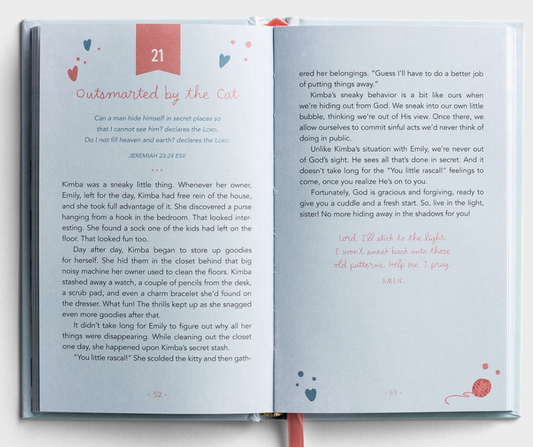 21
Outsmarted by the Cat
Can a man hide himself in secret places so
that I cannot see him? declares the LORD.
Do I not fill heaven and earth? declares the LORD.
JEREMIAH 23:24 ESV
Kimba was a sneaky little thing. Whenever her owner,
Emily, left for the day, Kimba had free rein of the house,
and she took full advantage of it. She discovered a purse
hanging from a hook in the bedroom. That looked inter-
esting. She found a sock one of the kids had left on the
floor. That looked fun too.
Day after day, Kimba began to store up goodies
for herself. She hid them in the closet behind that big
noisy machine her owner used to clean the floors. Kimba
stashed away a watch, a couple of pencils from the desk,
a scrub pad, and even a charm bracelet she'd found on
the dresser. What fun! The thrills kept up as she snagged
even more goodies after that.
It didn't take long for Emily to figure out why all her
things were disappearing. While cleaning out the closet
one day, she happened upon Kimba's secret stash.
"You little rascal!" She scolded the kitty and then gath-
- 52 -
ered her belongings. "Guess I'll have to do a better job
of putting things away."
Kimba's sneaky behavior is a bit like ours when
we're hiding out from God. We sneak into our own little
bubble, thinking we're out of His view. Once there, we
allow ourselves to commit sinful acts we'd never think of
doing in public.
Unlike Kimba's situation with Emily, we're never out
of God's sight. He sees all that's done in secret. And it
doesn't take long for the "You little rascal!" feelings to
come, once you realize He's on to you.
Fortunately, God is gracious and forgiving, ready to
give you a cuddle and a fresh start. So, live in the light,
sister! No more hiding away in the shadows for you!
Lord, I'll stick to the light.
I won't sneak back into those
old patterns. Help me, I pray.
AMEN.
- 53 -